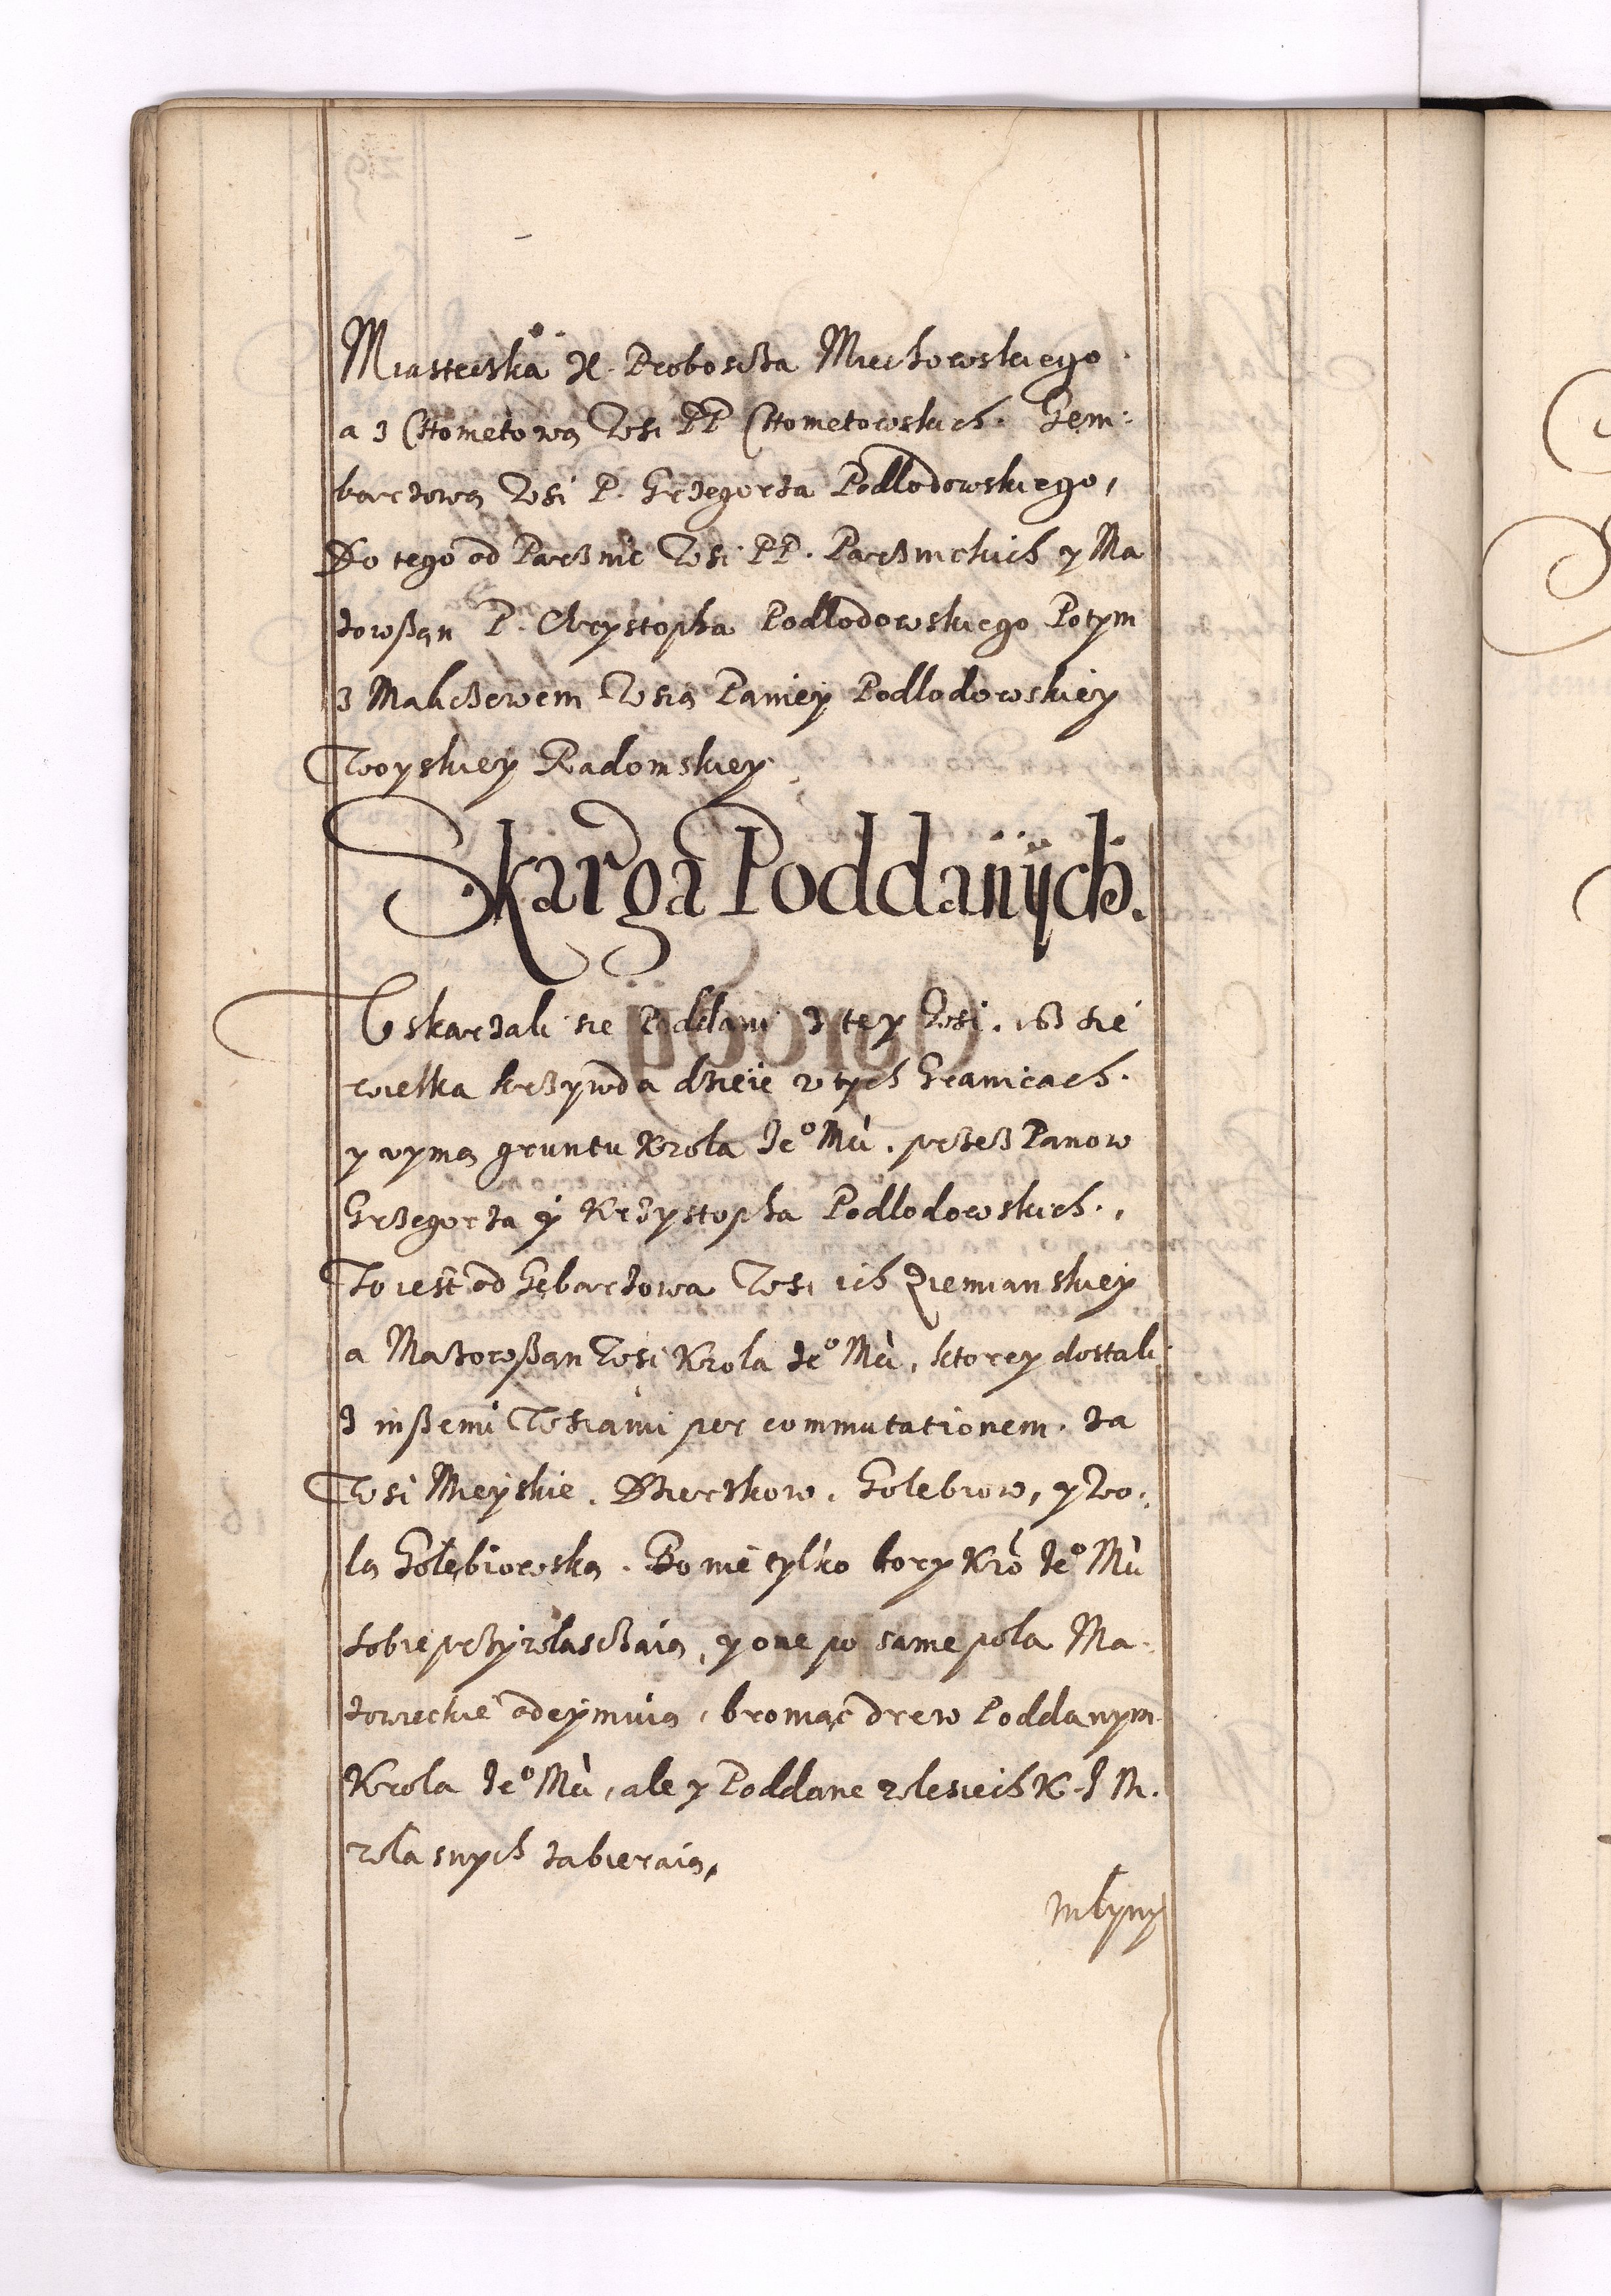 Miasteczka X. Proboscza Miechowskiego.
a z Chometową Wsi PP Chometowskich. Gem:
barzową Wsi P. Grzegorza Podlodowskiego,
Do tego od Parznic Wsi PP. Parznickich y Ma
zowszan P. Chrystopha Podlodowskiego Potym
z Maliczewem Wsią Paniey Podlodowskiey
Woyskiey Radomskiey.
Skarga Poddanych.
Uskarzali sie Poddani z tey Wsi. isz się
wielka krzywda dzieie w tych Granicach.
y uymą gruntu Krola Jeº Mći. przez Panow
Grzegorza y Krzysztopha Podlodowskich.,
To iest od Gębarzowa Wsi ich Ziemianskiey
a Mazowszan Wsi Krola Jeº Mći, ktorey dostali
z inszemi Wsiami per commutationem. za
Wsi Mieyskie. Dzierzkow. Golebiow, y Wo:
lą Golębiowską. Bo nie tylko bory Kró Jeº Mći
sobie przywlasczaią, y one po same pola Ma:
zowieckie odeymuią, broniąc drew Poddanym
Krola Jeº Mći, ale y Poddane w lesiech K J M.
wlasnych zabieraią,
mlyny